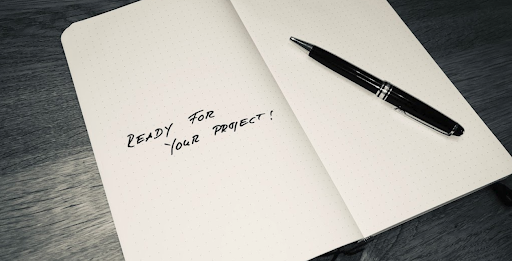 READY FOR
YOUR PROJECT!